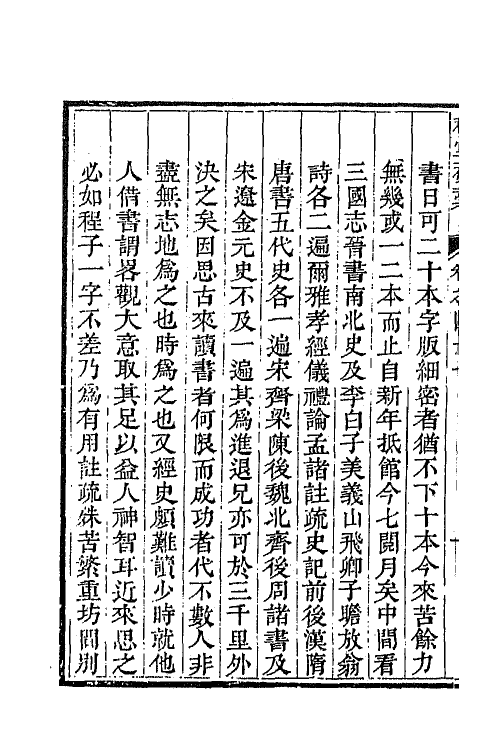 書日可二十本字版細密者猶不下十本今來苦餘力
無幾或一二本而止自新年抵館今七閱月矣中間看
三國志晉書南北史及李白子美義山飛卿子瞻放翁
詩各二遍爾雅孝經儀禮論孟諸註疏史記前後漢隋
唐書五代史各一遍宋齊梁陳後魏北齊後周諸書及
宋遼金元史不及一遍其爲進退兄亦可於三千里外
決之矣因思古來讀書者何限而成功者代不數人非
盡無志地爲之也時爲之也又經史頗難讀少時就他
人借書謂畧觀大意取其足以益人神智耳近來思之
必如程子一字不差乃爲有用註疏殊苦繁重坊間別